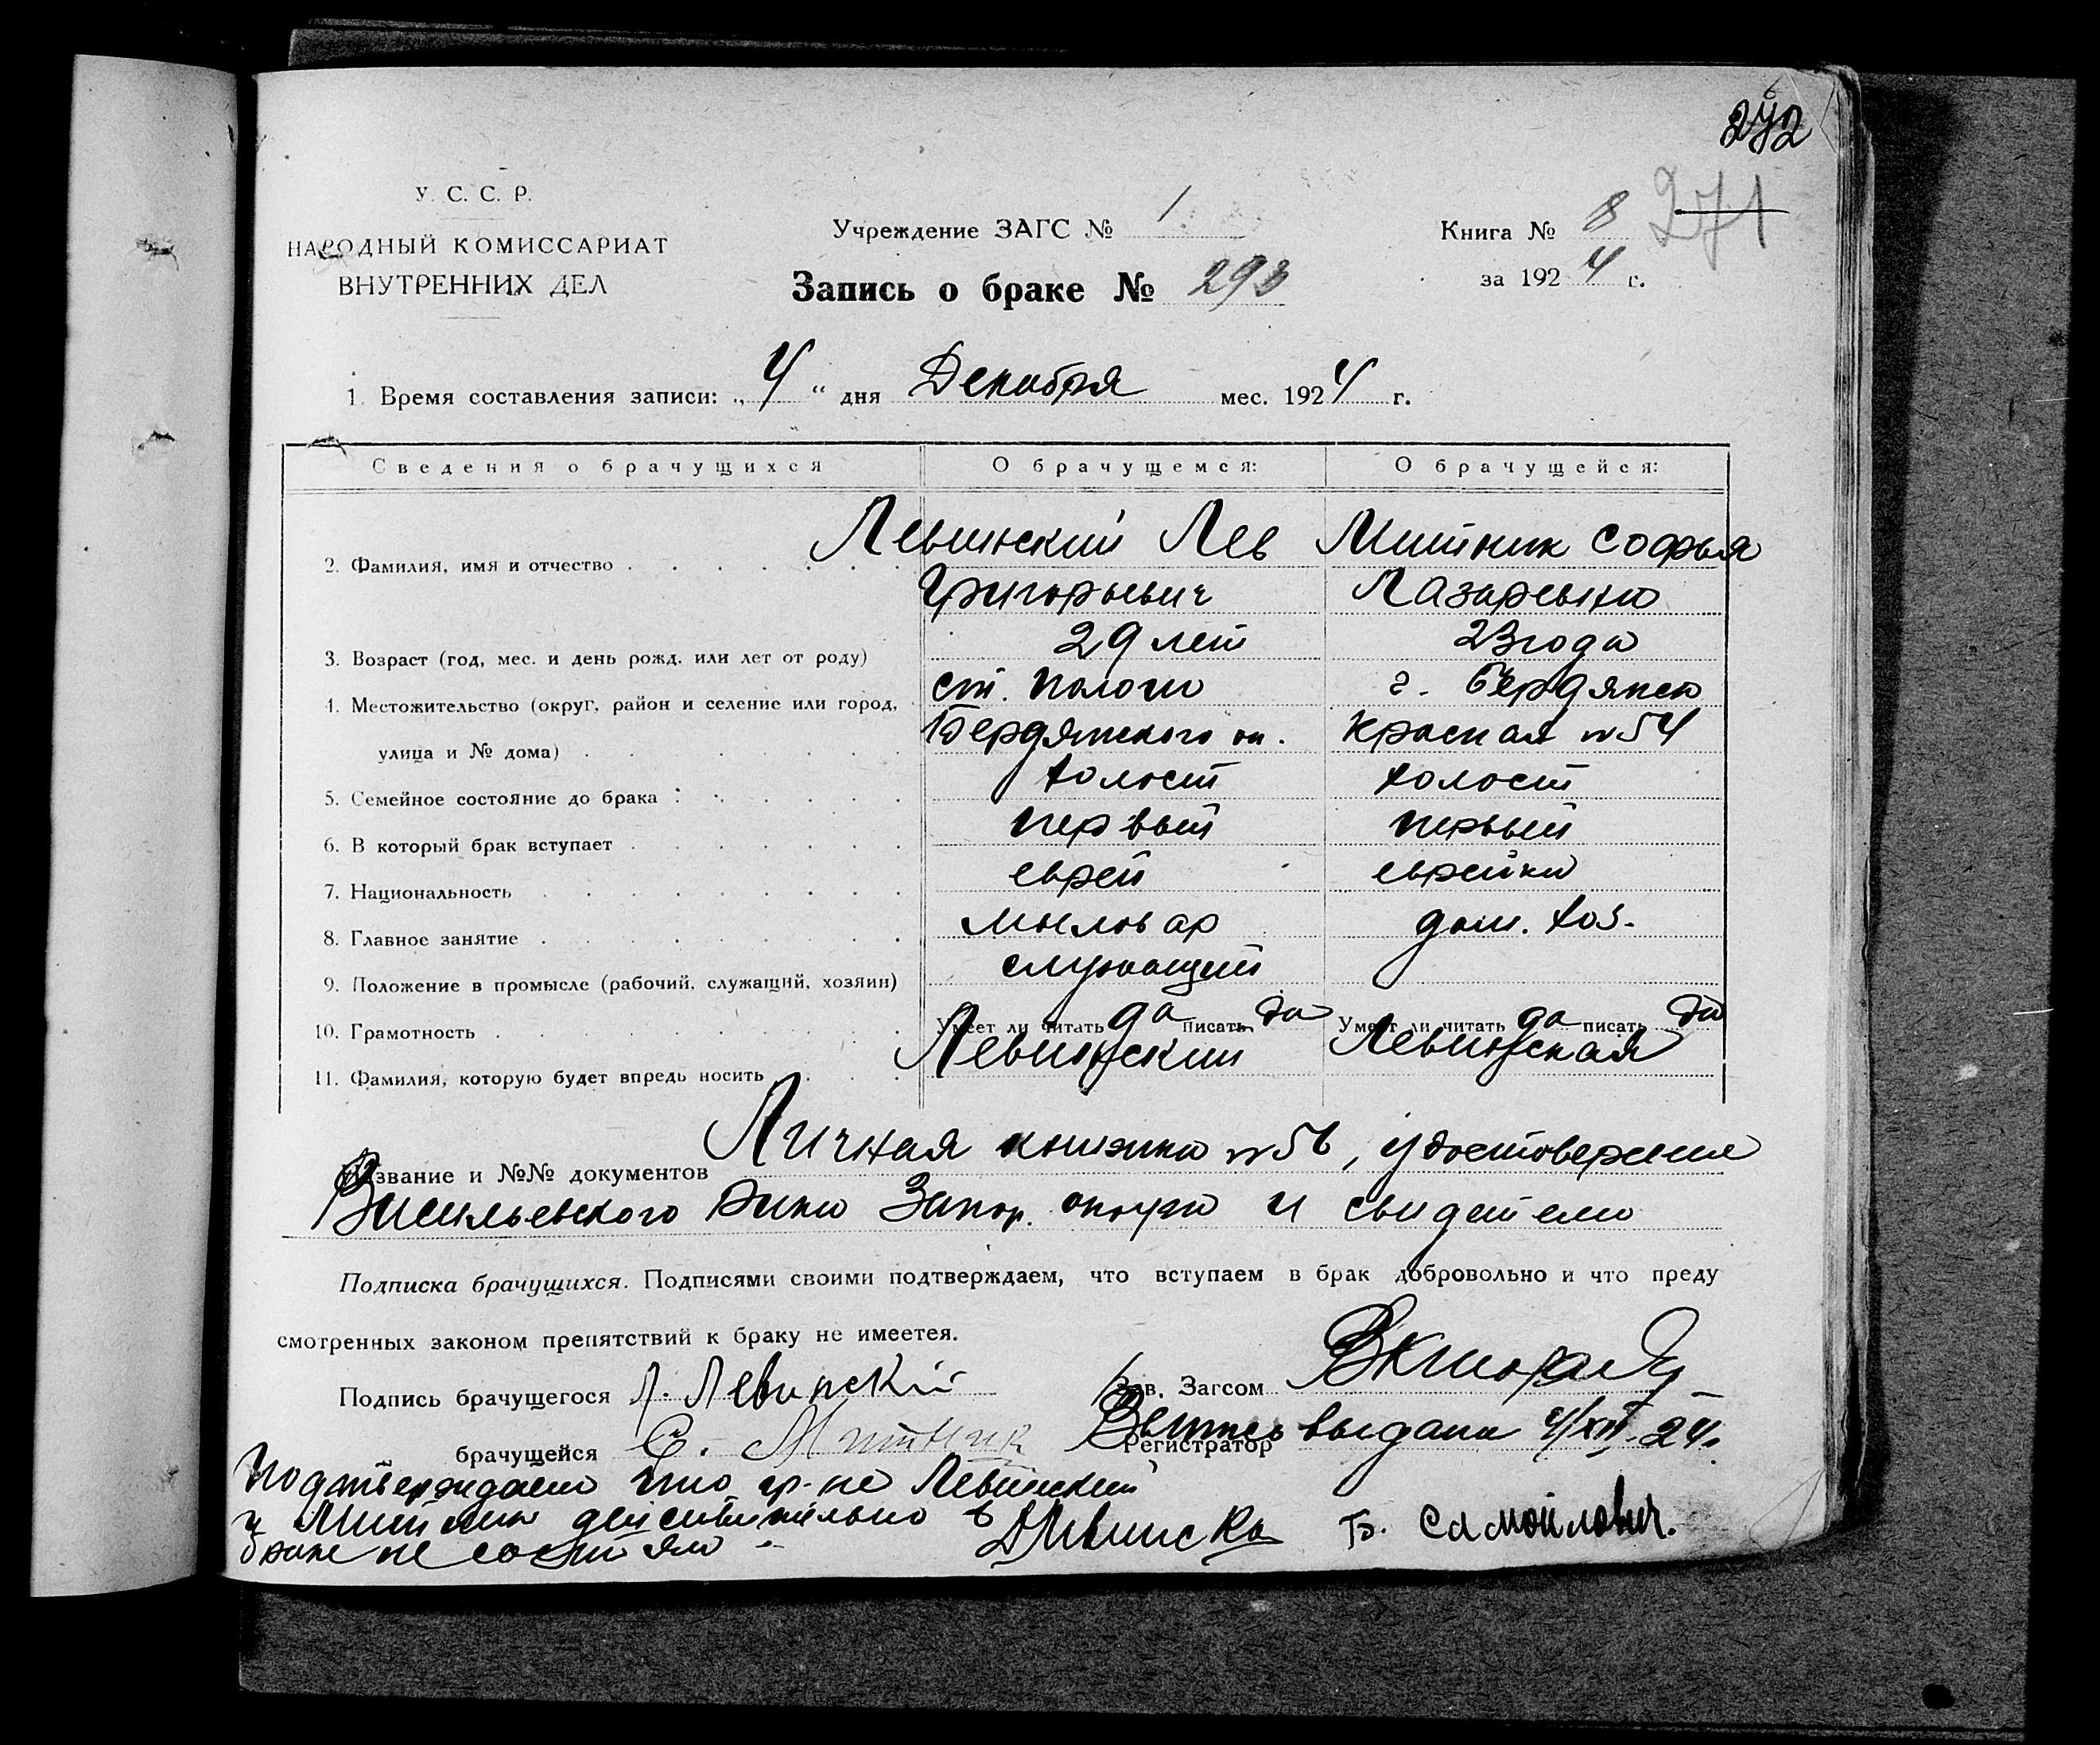 272
У. С. С. Р.
НАРОДНЫЙ КОМИССАРИАТ
ВНУТРЕННИХ ДЕЛ
Учреждение ЗАГС № 1
Книга № 8 271
Запись о браке № 293
за 1924 г.
1. Время составления записи: „4“ дня Декабря мес. 1924 г.
Сведения о брачущихся О брачущемся: О брачущейся:
2. Фамилия, имя и отчество Левинский Лев Митник Софья
Григорьевич Лазаревна
3. Возраст (год, мес. и день рожд. или лет от роду) 29 лет 23 года
4. Местожительство (округ, район и селение или город, ст. Пологи г. Бердянск
улица и № дома) Бердянского ок. Красная № 54
5. Семейное состояние до брака холост холост
6. В который брак вступает первый первый
7. Национальность еврей еврейка
8. Главное занятие мыловар дом. хоз.
9. Положение в промысле (рабочий, служащий, хозяин) служащий
10. Грамотность Умеет ли читать да писать да Умеет ли читать да писать да
11. Фамилия, которую будет впредь носить Левинский Левинская
Название и №№ документов Личная книжка № 56, удостоверение
Васильевского Рика Запор. округа и свидетели
Подписка брачущихся. Подписями своими подтверждаем, что вступаем в брак добровольно и что преду
смотренных законом препятствий к браку не имеется.
Подпись брачущегося Л. Левинский Зав. Загсом
брачущейся С. Митник Регистратор Выпись выдана 4/XII-24.
Подтверждаем что гр-не Левинский
и Митник действительно в
браке не состояли Б. Самойлович.